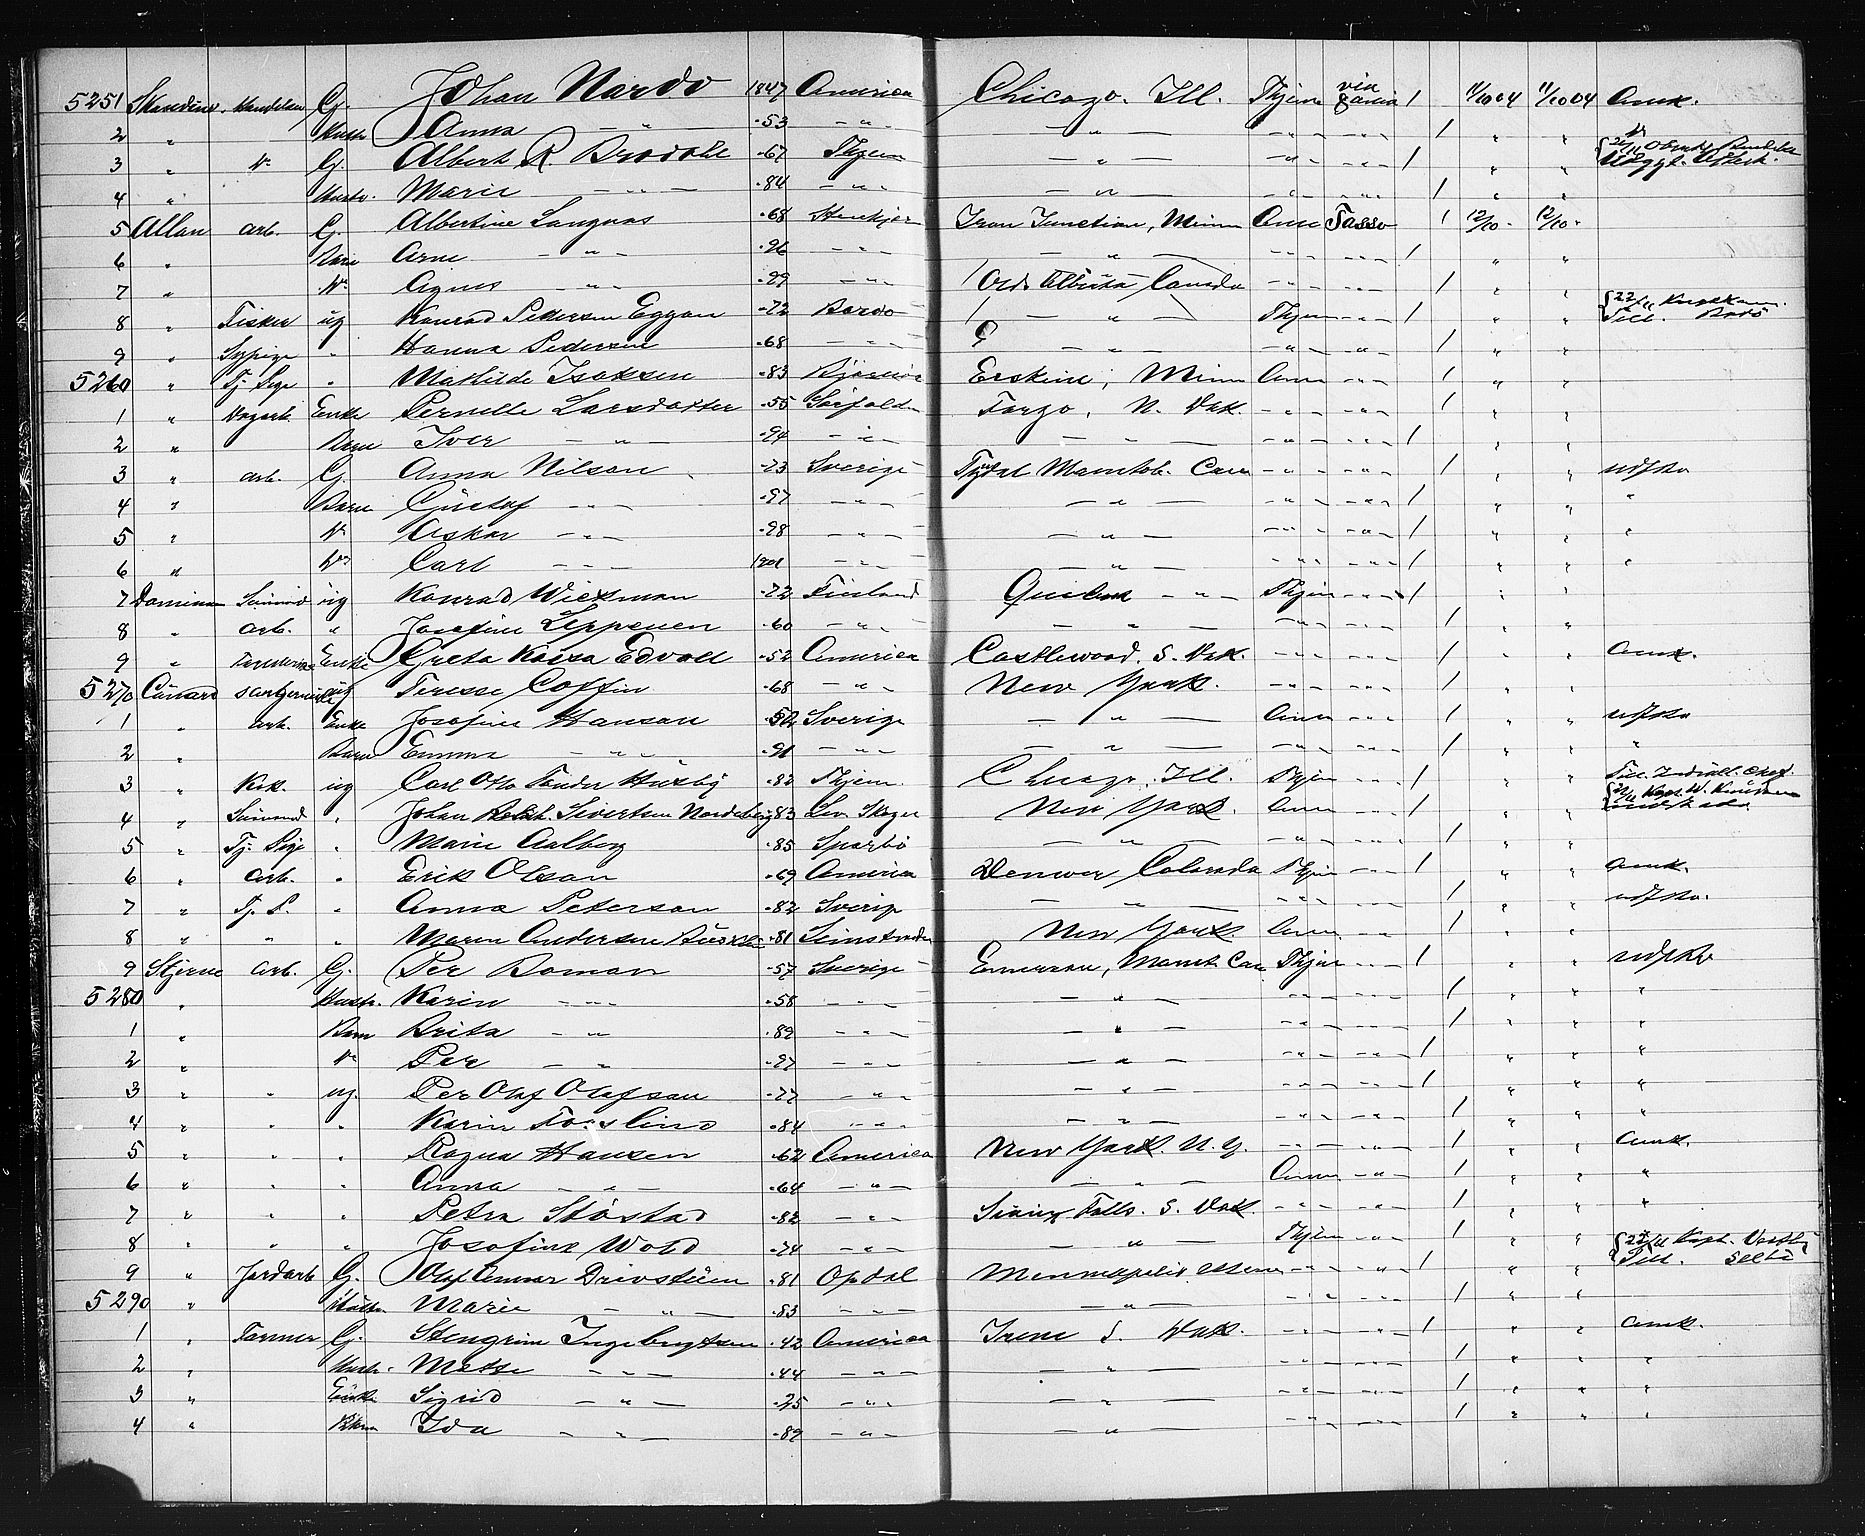 5251 Skandinav. Handelsm G. Johan Nardo 1847 America Chicago. Ill. Thjem via 1 11/10 04 11/10 04 Amk.
2 " Hustr Anna - " - -53 - " - - " - - " - - " - 1 " "
3 " do G. Albert R. Brodahl -67 Thjem - " - - " - - " - 1 " "
4 " Hustr. Marie - " - -84 - " - - " - - " - - " - 1 " "
5 Allan arb. G. Albertine Langnas -68 Stenkjær Iron Junction, Minn Am Tasso 1 12/10 - 12/10 -
6 " Barn Arne - " - -96 - " - - " - - " - - " - 1 " "
7 " do Agnes - " - -99 - " - Alberta Canada - " - - " - 1 " "
8 " Fisker ug Konrad Pedersen Eggan -72 Bardo - " - Thjem - " - 1 " "
9 " Sypige " Hanna Pedersen -68 - " - - " - - " - - " - 1 " "
5260 " Tj. Pige " Mathilde Isaksen -83 Erskine, Minn Am - " - 1 " "
1 " Dagarb. Enke Pernelle Larsdatter -55 Sørfolden Fargo, N. Dak. - " - - " - 1 " "
2 " Barn Iver - " - -94 - " - - " - - " - - " - 1 " "
3 " arb. G. Anna Nilson -73 Sverige Manitob. Can - " - - " - 1 " " udfsk
4 " Barn Gustaf - " - -97 - " - - " - - " - - " - 1 " " "
5 " do Askar - " - -98 - " - - " - - " - - " - 1 " " "
6 " do Carl - " - 1901 - " - - " - - " - - " - 1 " " "
7 Dominion Sømand ug Konrad Wickman -72 Finland Quebec - " - Thjem - " - 1 " "
8 " arb. " Josefine Leppenen -60 - " - - " - - " - - " - 1 " "
9 " Enke Greta Kaisa Edvall -52 America Castlewood. S. Dak. - " - - " - 1 " " Amk.
5270 Cunard ug Teresse Coffin -68 - " - New York. - " - - " - 1 " "
1 " arb. Enke Josefine Hanson -52 Sverige - " - Am - " - 1 " " udfsk
2 " Barn Emma - " - -91 - " - - " - - " - - " - 1 " " "
3 " Kok. ug Carl Otto Husby -82 Thjem. Chicago. Ill. Thjem - " - 1 " "
4 " Sømand " Johan Sivertsen Nordeberg -83 Lev. Skogn New York Am - " - 1 " "
5 " Tj. Pige " Marie Aalberg -85 Sparbo - " - - " - - " - 1 " "
6 " arb. " Erik Olson -69 America Denwer Colorado Thjem - " - 1 " " Amk.
7 " Tj. P. " Anna Peterson -82 Sverige - " - - " - - " - 1 " " udfsk.
8 " " " Maren Andersen -81 New York Am - " - 1 " "
9 Stjerne arb. G. Per Boman -57 Sverige Emerson, Manit. Can Thjem - " - 1 " " udfsk
5280 " Hustr. Karin - " - -58 - " - - " - - " - - " - 1 " " "
1 " Barn Brita - " - -89 - " - - " - - " - - " - 1 " " "
2 " do Per - " - -97 - " - - " - - " - - " - 1 " " "
3 " " ug. Per Olof Olofson -77 - " - - " - - " - - " - 1 " " "
4 " " " Karin Forslind -84 - " - - " - - " - - " - 1 " " "
5 " " " Ragna Hansen -62 America New York. N. Y. - " - - " - 1 " " Amk.
6 " " " Anna - " - -64 - " - - " - Am - " - 1 " " "
7 " " " Petra Støstad -82 - " - Sioux Falls. S. Dak. - " - - " - 1 " " "
8 " " " Josefine Wold -74 - " - - " - Thjem - " - 1 " "
9 " Jordarb G. Olaf Annar Drivstuen -81 Opdal Minneapolis Minn - " - - " - 1 " "
5290 " Hustr. Marie - " - -83 - " - - " - - " - - " - 1 " "
1 " Farmer G. Stengrim Ingebrigtsen -42 America Irene S. Dak. - " - - " - 1 " " Amk.
2 " Hustr. Mette - " - -44 - " - - " - - " - - " - 1 " " "
3 " Enke Sigrid - " - -25 - " - - " - - " - - " - 1 " " "
4 " Barn Ida - " - -89 - " - - " - - " - - " - 1 " " "